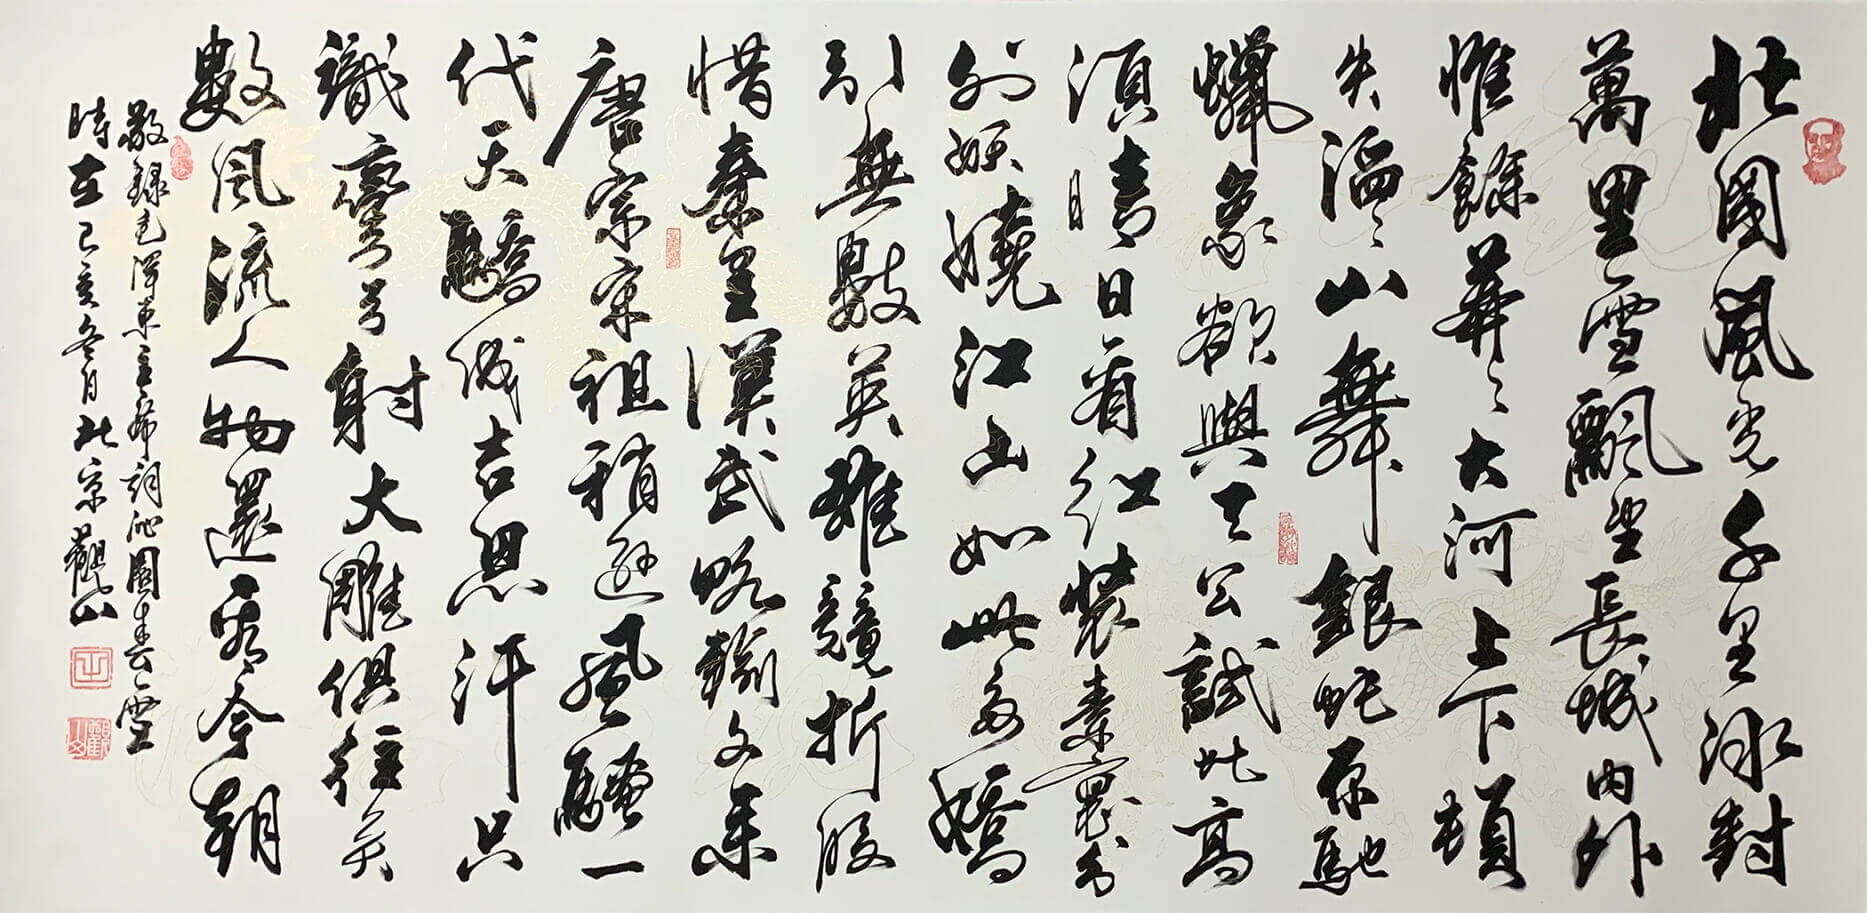 北國風光千里冰封
萬里雪飄望長城內外
惟餘莽〻大河上下頓
失滔〻山舞銀蛇原馳
蠟象欲與天公試比高
須晴日看紅裝素裹分
外妖嬈江山如此多嬌
引無數英雄競折腰
惜秦皇漢武略輸文采
唐宗宋祖稍遜風騷一
代天驕成吉思汗只
識彎弓射大雕俱往矣
數風流人物還看今朝
敬録毛澤東主席詞沁園春雪
時在己亥冬月北京觀山